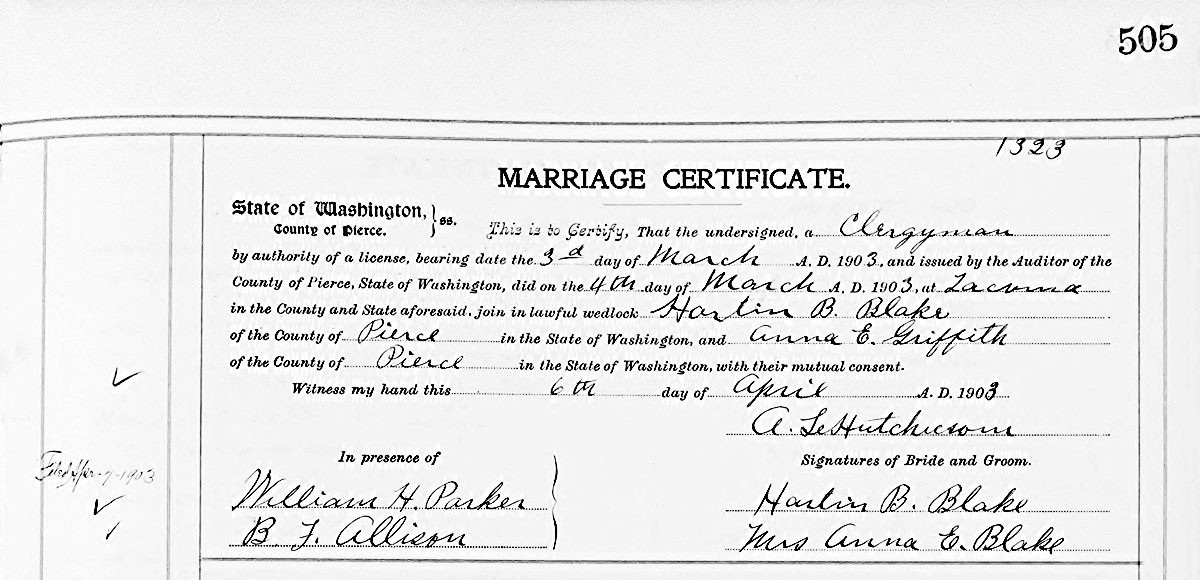 505
1323
MARRIAGE CERTIFICATE.
State of Washington, } ss.
County of Pierce.
This is to Certify, That the undersigned, a Clergyman
by authority of a license, bearing date the 3d day of March A. D. 1903, and issued by the Auditor of the
County of Pierce, State of Washington, did on the 4th day of March A. D. 1903, at Tacoma
in the County and State aforesaid, join in lawful wedlock Harlin B. Blake
of the County of Pierce in the State of Washington, and Anna E. Griffith
of the County of Pierce in the State of Washington, with their mutual consent.
Witness my hand this 6th day of April A. D. 1903
A. Hutchison
In presence of
Signatures of Bride and Groom.
Filed Apr-7-1903
William H. Parker
Harlin B. Blake
B. F. Allison
Mrs Anna E. Blake